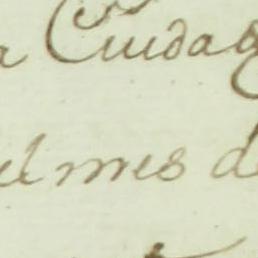 a Ciudad
el mes d